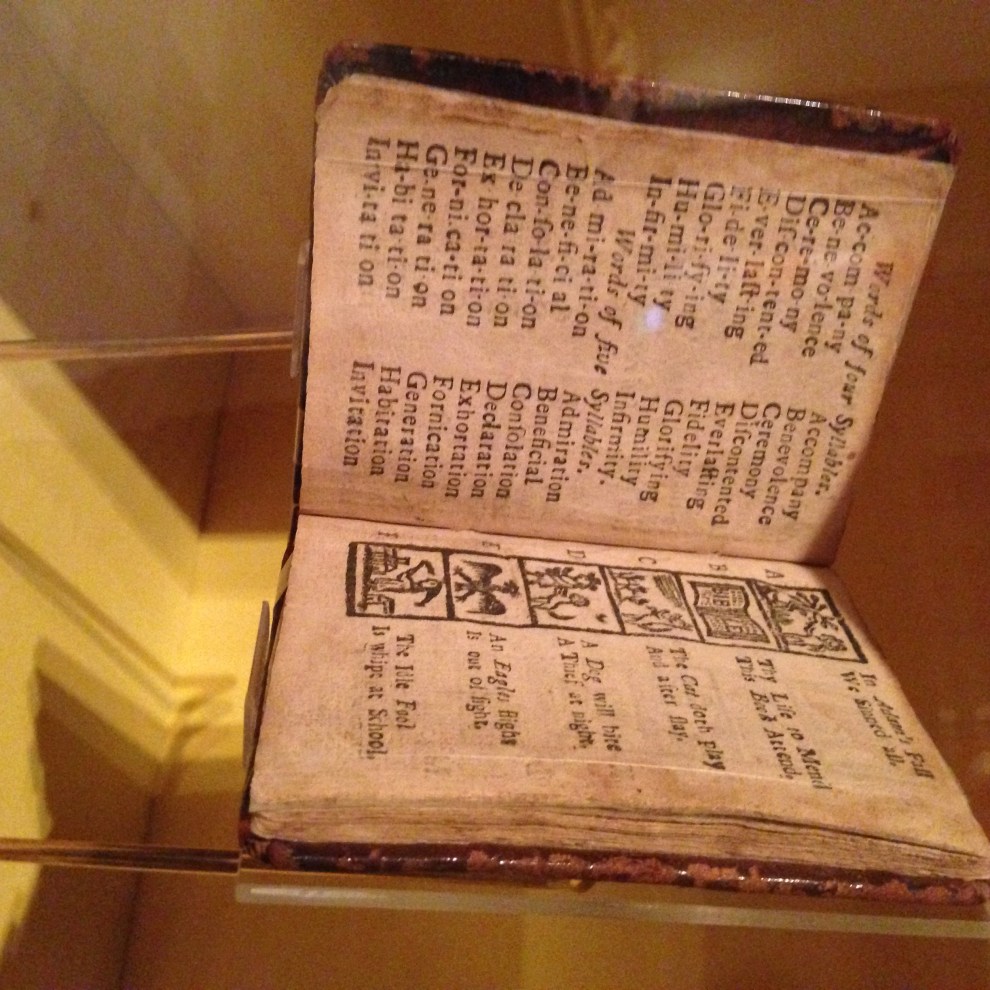 Words of four Syllables.
Ac-com pa-ny Accompany
Be-ne-vo-lence Benevolence
Ce-re-mo-ny Ceremony
Diſ-con-tent-ed Diſcontented
E-ver-laſt-ing Everlaſting
Fi-de-li-ty Fidelity
Glo-ri-fy-ing Glorifying
Hu-mi-li ty Humility
In-fir-mi-ty Infirmity.
Words of five Syllables.
Ad mi-ra-ti-on Admiration
Be-ne-fi-ci al Beneficial
Con-ſo-la ti-on Conſolation
De cla ra ti on Declaration
Ex hor-ta-ti-on Exhortation
For-ni-ca-ti on Fornication
Ge-ne-ra ti-on Generation
Ha-bi ta-ti-on Habitation
In-vi-ta ti on Invitation
A In Adam's Fall
We Sinned all.
B Thy Life to Mend
This Book Attend.
C The Cat doth play
And after ſlay.
D A Dog will bite
A Thief at night.
E An Eagles flight
Is out of ſight.
F The Idle Fool
Is whipt at School.